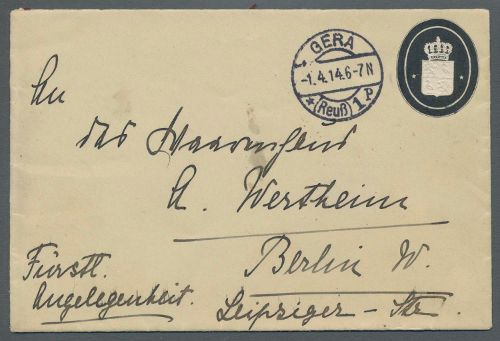 GERA
-1.4.14.6-7N
*(Reuß)1P
An
das Waarenhaus
A. Wertheim
Berlin W.
Leipziger-Str.
Fürstl.
Angelegenheit.